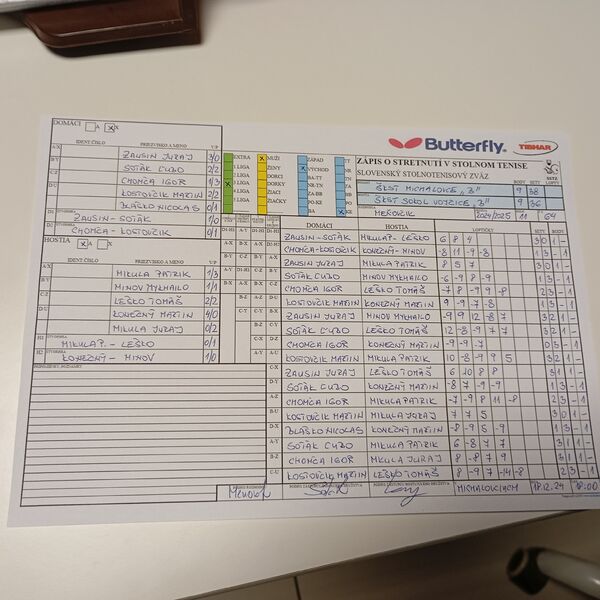 Butterfly
TIBHAR
DOMÁCI A X
IDENT ČÍSLO PRIEZVISKO A MENO V/P
ZÁPIS O STRETNUTÍ V STOLNOM TENISE
SLOVENSKÝ STOLNOTENISOVÝ ZVÄZ
BODY SETY LOPTY
ŠKST MICHALOVCE "B" 9
9 36
2024/2025 11
A-X ZAUSIN JURAJ 3/0
B-Y SOTÁK ĽUBO 2/2
C-Z CHOMČA IGOR
D-U KOSTOVČIK MARTIN 2/2
BLAŠKO NICOLAS 0/1
D1 ŠTVORHRA ZAUSIN - SOTÁK 1/0
D2 CHOMČA - KOSTOVČIK 0/1
EXTRA
1.LIGA
2.LIGA
3.LIGA
4.LIGA
5.LIGA
MUŽI
ŽENY
DORCI
DORKY
ŽIACI
ŽIAČKY
ZÁPAD
VÝCHOD
BA-TT
NR-TN
ZA-BB
PO-KE
BA
HOSTIA A X
IDENT ČÍSLO PRIEZVISKO A MENO V/P
MIKULA PATRIK 1/3
MINOV MYKHAILO 1/1
LEŠKO TOMÁŠ 2/2
KONEČNÝ MARTIN 4/0
MIKULA JURAJ 0/2
H1 ŠTVORHRA MIKULA P. - LEŠKO 0/1
H2 ŠTVORHRA KONEČNÝ - MINOV 1/0
DOMÁCI HOSTIA LOPTIČKY SETY BODY
ZAUSIN - SOTÁK MIKULA P. - LEŠKO 6 8 4 3 0 1 -
CHOMČA - KOSTOVČIK KONEČNÝ - MINOV -8 11 -9 -8 1 3 - 1
ZAUSIN JURAJ MIKULA PATRIK 8 5 7 3 0 1 -
SOTÁK ĽUBO MINOV MYKHAILO -6 -9 8 -9 1 3 - 1
CHOMČA IGOR LEŠKO TOMÁŠ -7 8 -9 9 -8 2 3 - 1
KOSTOVČIK MARTIN KONEČNÝ MARTIN 9 -9 -7 -8 1 3 - 1
ZAUSIN JURAJ MINOV MYKHAILO -9 9 12 -8 7 3 2 1 -
SOTÁK ĽUBO LEŠKO TOMÁŠ 12 -8 -9 7 7 3 2 1 -
CHOMČA IGOR KONEČNÝ MARTIN -9 -9 -7 0 3 - 1
KOSTOVČIK MARTIN MIKULA PATRIK 10 -8 -9 9 5 3 2 1 -
ZAUSIN JURAJ LEŠKO TOMÁŠ 6 10 8 8 3 1 1 -
SOTÁK ĽUBO KONEČNÝ MARTIN -8 7 -9 -9 1 3 - 1
CHOMČA IGOR MIKULA PATRIK -7 -9 8 11 -8 2 3 - 1
KOSTOVČIK MARTIN MIKULA JURAJ 7 7 5 3 0 1 -
BLAŠKO NICOLAS KONEČNÝ MARTIN -8 -9 5 -9 1 3 - 1
SOTÁK ĽUBO MIKULA PATRIK 6 -8 7 7 3 1 1 -
CHOMČA IGOR MIKULA JURAJ 8 -8 7 9 3 1 1 -
KOSTOVČIK MARTIN LEŠKO TOMÁŠ 8 -9 7 -14 -8 2 3 - 1
MICHALOVCIACH 18.12.24 18:00